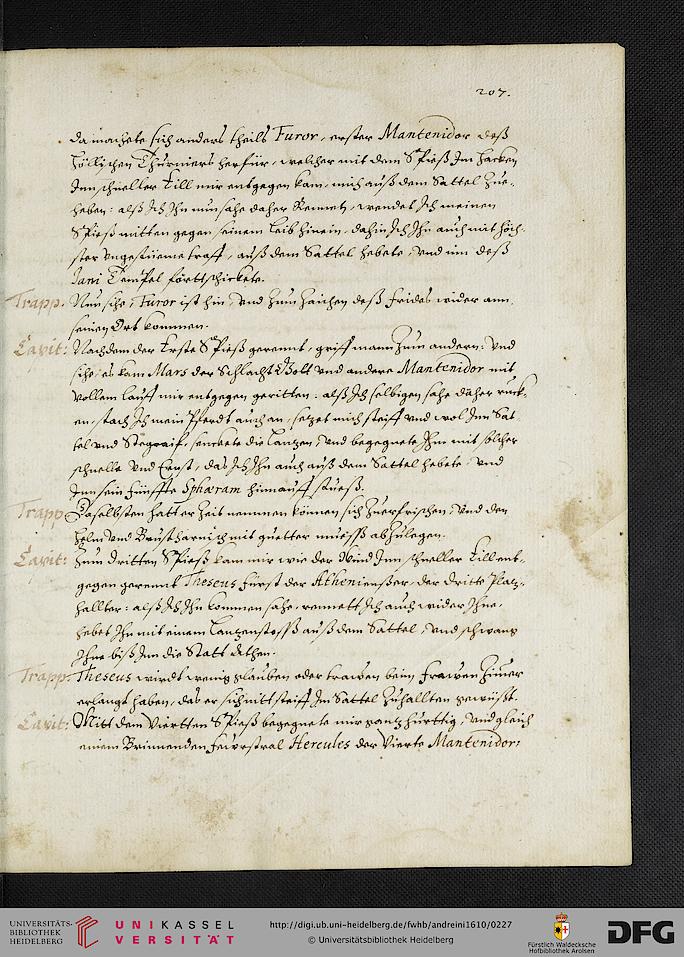 207.
da machete sich anders theils Furor, erster Mantenidor deß
höllischen Thurniers herfür, welcher mit dem Spieß Im hacken
Inn schneller Eill mir entgegen kam, mich auß dem Sattel Zue-
heben: alß Ich Ihn nun sahe daher Rennen, wendet Ich meinen
Spieß mitten gegen seinem Leib hinein, dahin Ich Ihn auch mit höch-
ster Ungestüeme traff, auß dem Sattel hebete, Vnd inn deß
Jani Tempel forttschickete.
Trapp. Nun sihe, Furor ist hin, Vnd Zum Zaichen deß frides wider ann
seinen Ort kommen.
Capit: Nachdem der Erste Spieß gerennt, griff mann Zum andern: Vnd
sihe, es kam Mars der Schlacht Gott vnd andere Mantenidor mit
vollem lauff mir entgegen geritten: alß Ich selbigen sahe daher ruck-
en, stach Ich mein Pferdt auch an, setzet mich steiff vnd wol Inn Sat-
tel vnd Stegraif, senckete die Lantzen, Vnd begegnete Ihm mit solcher
schnelle Vnd Ernst, das Ich Ihn auch auß dem Sattel hebete, Vnd
Inn sein fünffte Sphæram hinnauff stiesß.
Trapp. Daselbsten hatt er Zeit nemmen können sich Zuerfrischen, Vnd den
Helm vnd Brustharnisch mit guetter muesß abzulegen.
Capit: Zum dritten Spieß kam mir wie der Wind Inn schneller Eill ent-
gegen gerennt Theseus fürst der Athenienßer, der dritte Platz-
hallter: alß Ich Ihn kommen sahe, rennett Ich auch wider Ihne,
hebet Ihn mit einem Lantzenstosß auß dem Sattel, Vnd schwang
Ihne biß Inn die Statt Athen.
Trapp. Theseus wirdt wenig glauben oder trawen beim Frawen Zimer
erlangt haben, das er sich nitt steiff Im Sattel Zuhallten gewüsst.
Capit: Mitt dem Viertten Spieß begegnete mir gantz hürttig, vnd gleich
einem Brinnenden feürstral Hercules der Vierte Mantenidor:
UNIVERSITÄTS-
BIBLIOTHEK
HEIDELBERG
UNIKASSEL
VERSITÄT
http://digi.ub.uni-heidelberg.de/fwhb/andreini1610/0227
© Universitätsbibliothek Heidelberg
Fürstlich Waldecksche
Hofbibliothek Arolsen
DFG